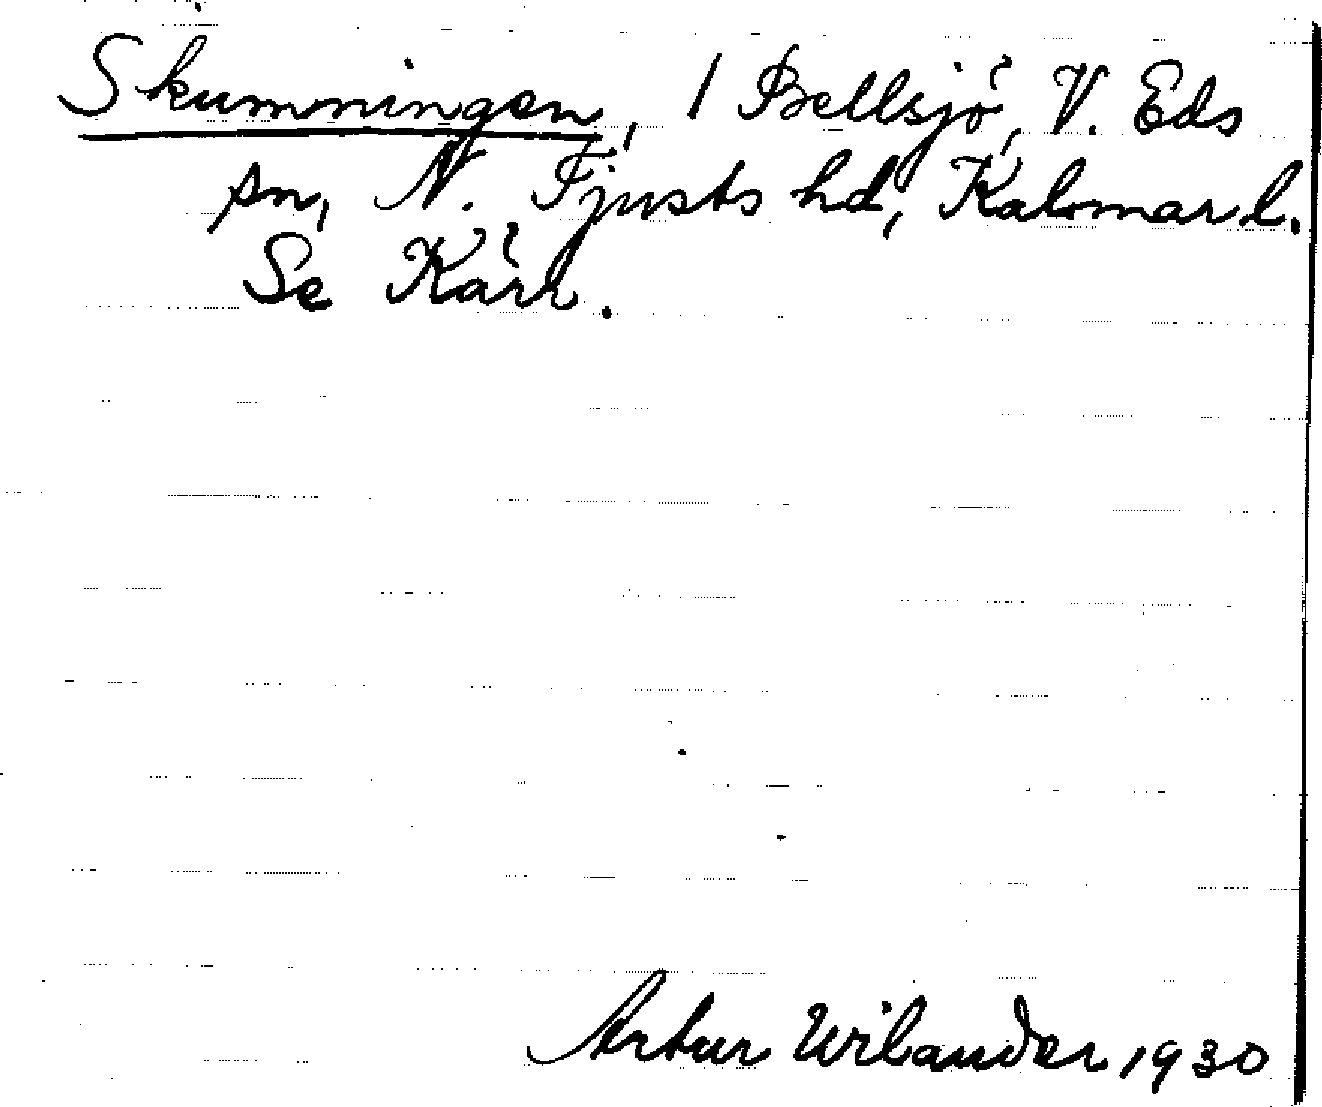 Skumningen, 1 Bellsjö, V. Eds
sn, N. Tjusts hd, Kalmar l.
Se Kärr.
Artur Wilander 1930